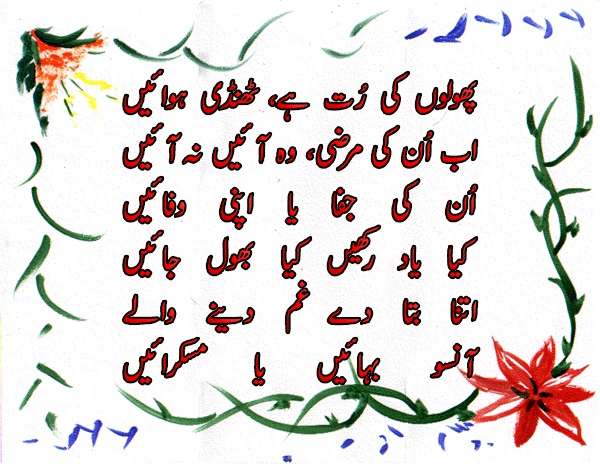 پھولوں کی رُت ہے، ٹھنڈی ہوائیں
اب اُن کی مرضی، وہ آئیں نہ آئیں
اُن کی جفا یا اپنی وفائیں
کیا یاد رکھیں کیا بھول جائیں
اتنا بتا دے غم دینے والے
آنسو بہائیں یا مسکرائیں